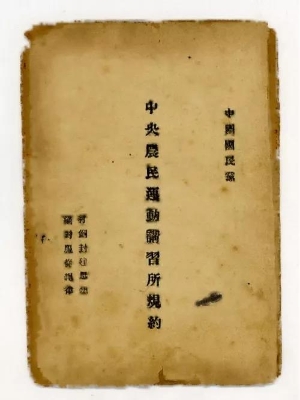 中國國民黨
中央農民運動講習所規約
封建思想